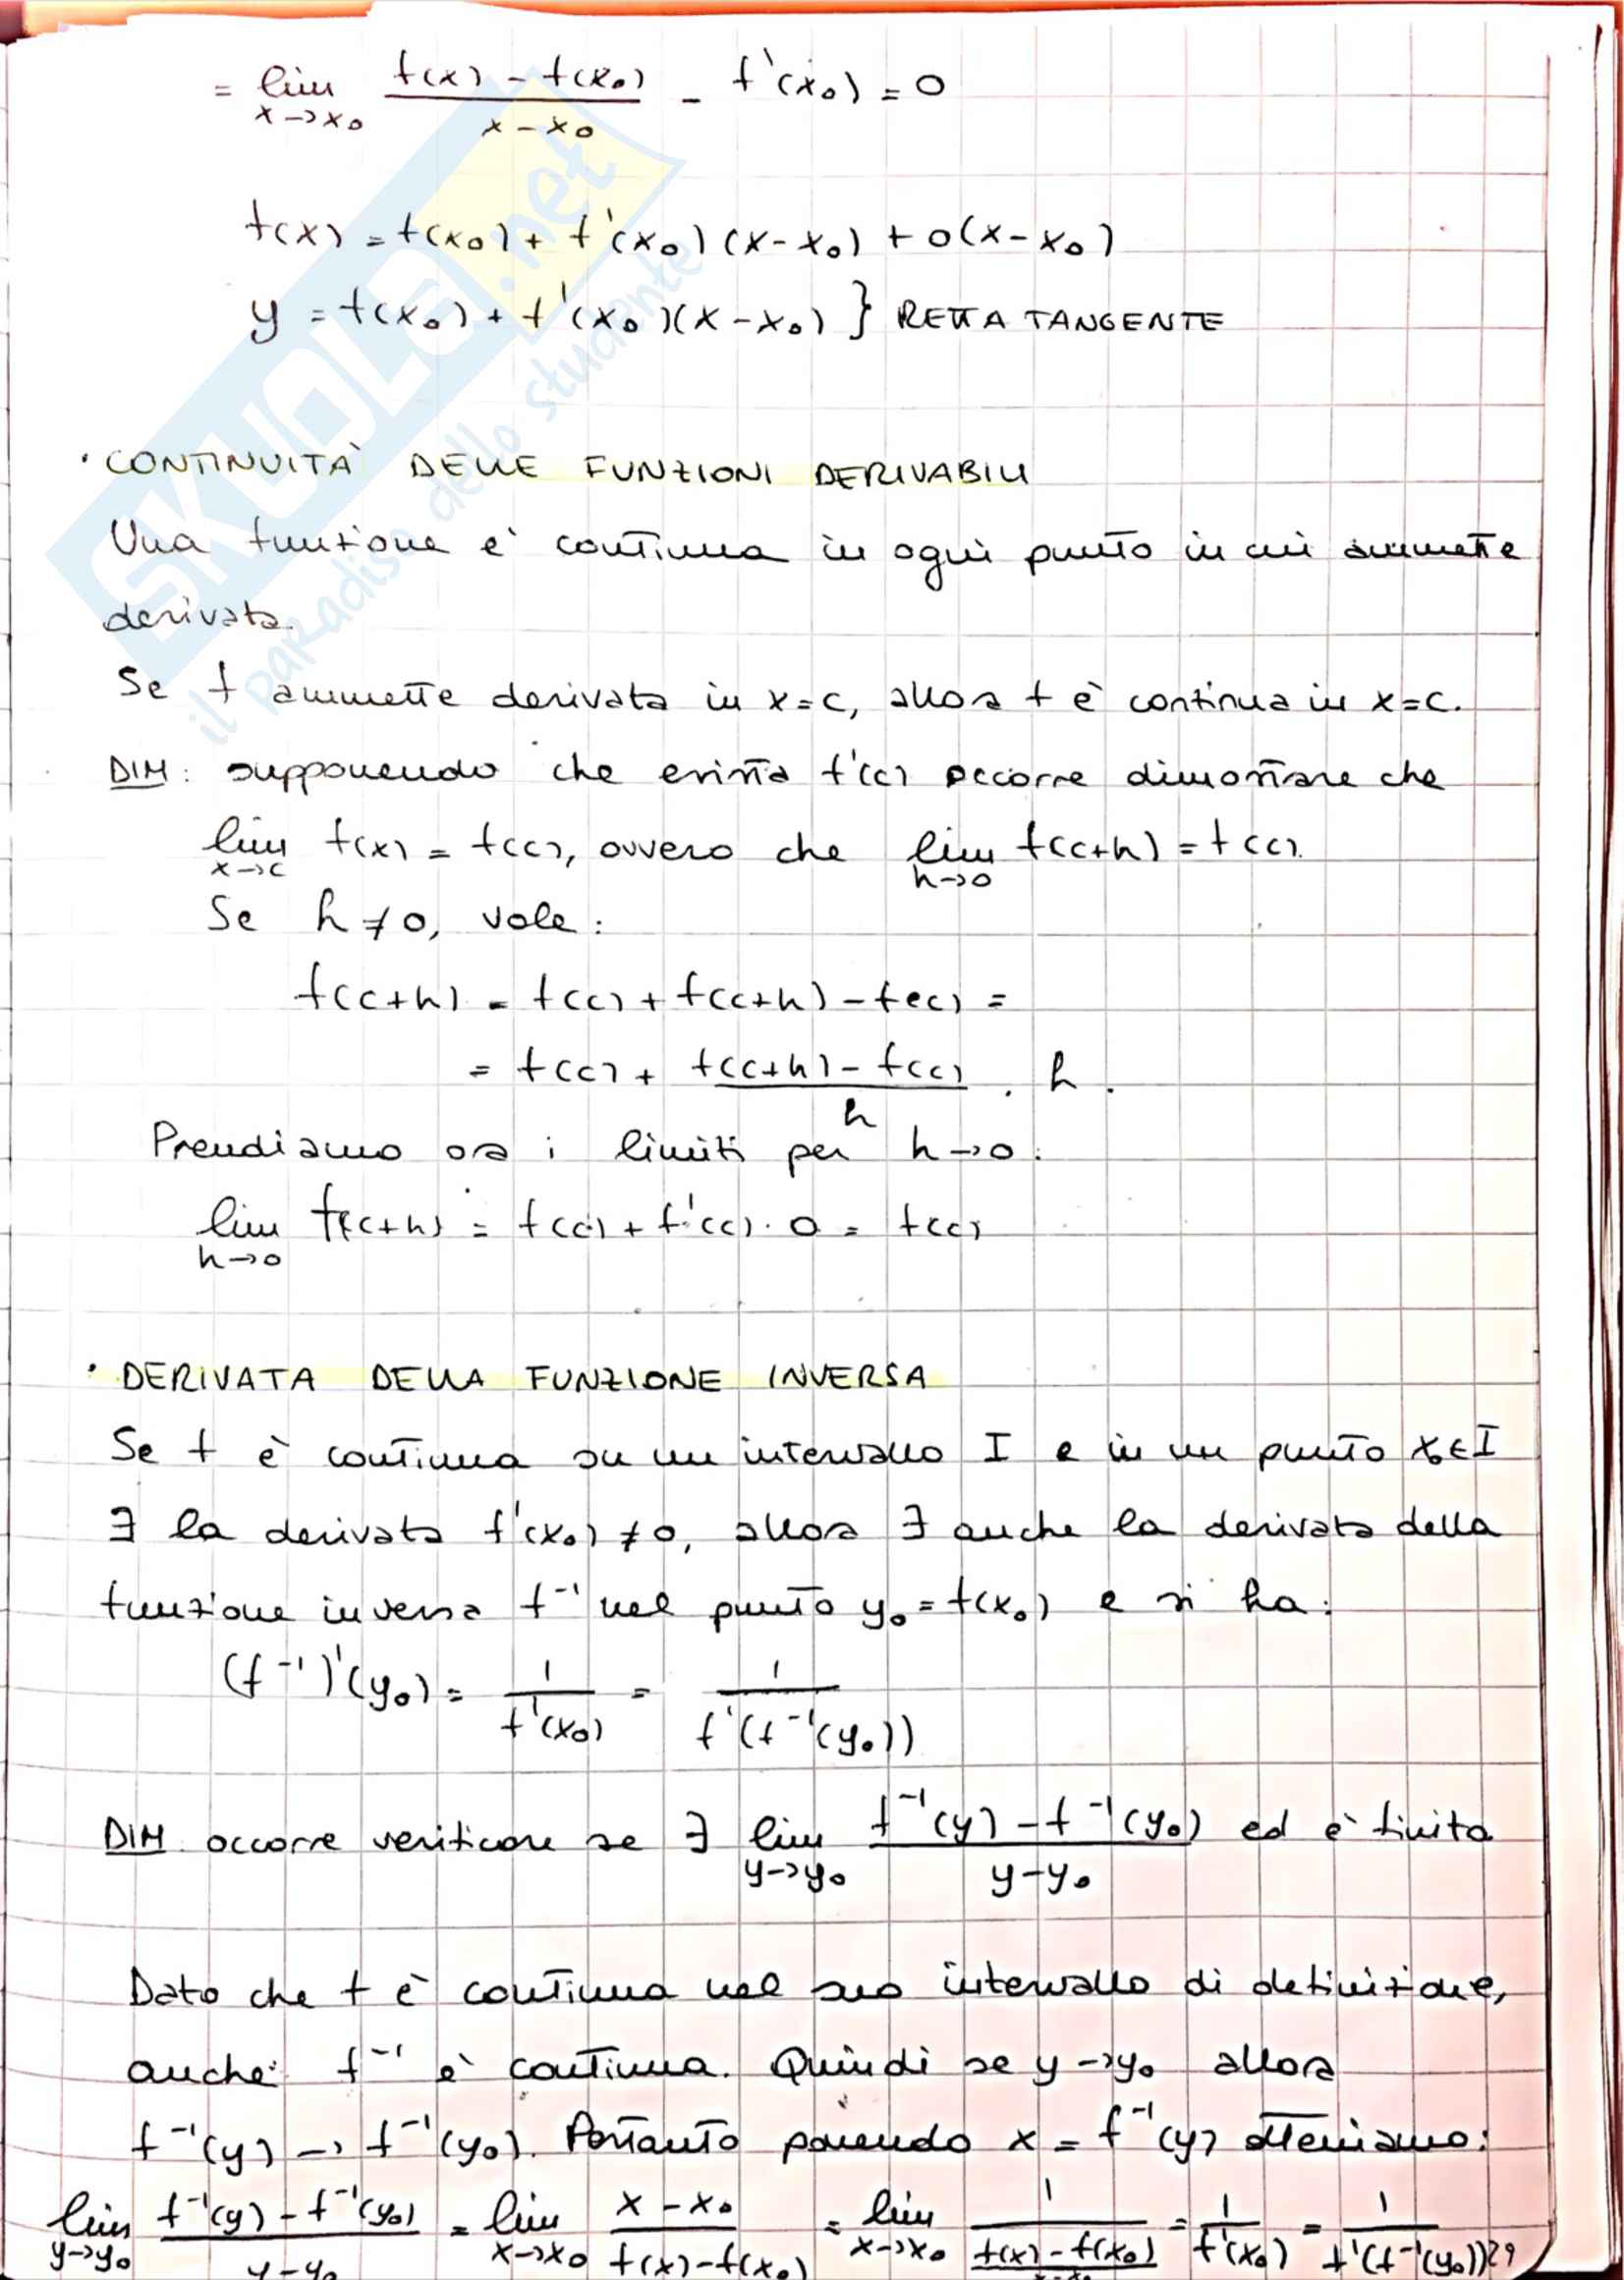 = lim x→x₀ (f(x) - f(x₀))/(x - x₀) - f'(x₀) = 0
f(x) = f(x₀) + f'(x₀)(x-x₀) + o(x-x₀)
y = f(x₀) + f'(x₀)(x-x₀) } RETTA TANGENTE
SKUOLA.net
il paradiso dello studente
· CONTINUITÀ DELLE FUNZIONI DERIVABILI
Una funzione è continua in ogni punto in cui ammette
derivata.
Se f ammette derivata in x=c, allora f è continua in x=c.
DIM: supponendo che esista f'(c) occorre dimostrare che
lim x→c f(x) = f(c), ovvero che lim h→0 f(c+h) = f(c).
Se h ≠ 0, vale:
f(c+h) = f(c) + f(c+h) - f(c) =
= f(c) + (f(c+h) - f(c))/h · h.
Prendiamo ora i limiti per h→0:
lim h→0 f(c+h) = f(c) + f'(c) · 0 = f(c)
· DERIVATA DELLA FUNZIONE INVERSA
Se f è continua su un intervallo I e in un punto x₀∈I
∃ la derivata f'(x₀) ≠ 0, allora ∃ anche la derivata della
funzione inversa f⁻¹ nel punto y₀ = f(x₀) e si ha:
(f⁻¹)'(y₀) = 1/f'(x₀) = 1/f'(f⁻¹(y₀))
DIM occorre verificare se ∃ lim y→y₀ (f⁻¹(y) - f⁻¹(y₀))/(y-y₀) ed è finito
Dato che f è continua nel suo intervallo di definizione,
anche f⁻¹ è continua. Quindi se y→y₀ allora
f⁻¹(y) → f⁻¹(y₀). Pertanto ponendo x = f⁻¹(y) otteniamo:
lim y→y₀ (f⁻¹(y) - f⁻¹(y₀))/(y-y₀) = lim x→x₀ (x - x₀)/(f(x)-f(x₀)) = lim x→x₀ 1/((f(x)-f(x₀))/(x-x₀)) = 1/f'(x₀) = 1/f'(f⁻¹(y₀)) 29